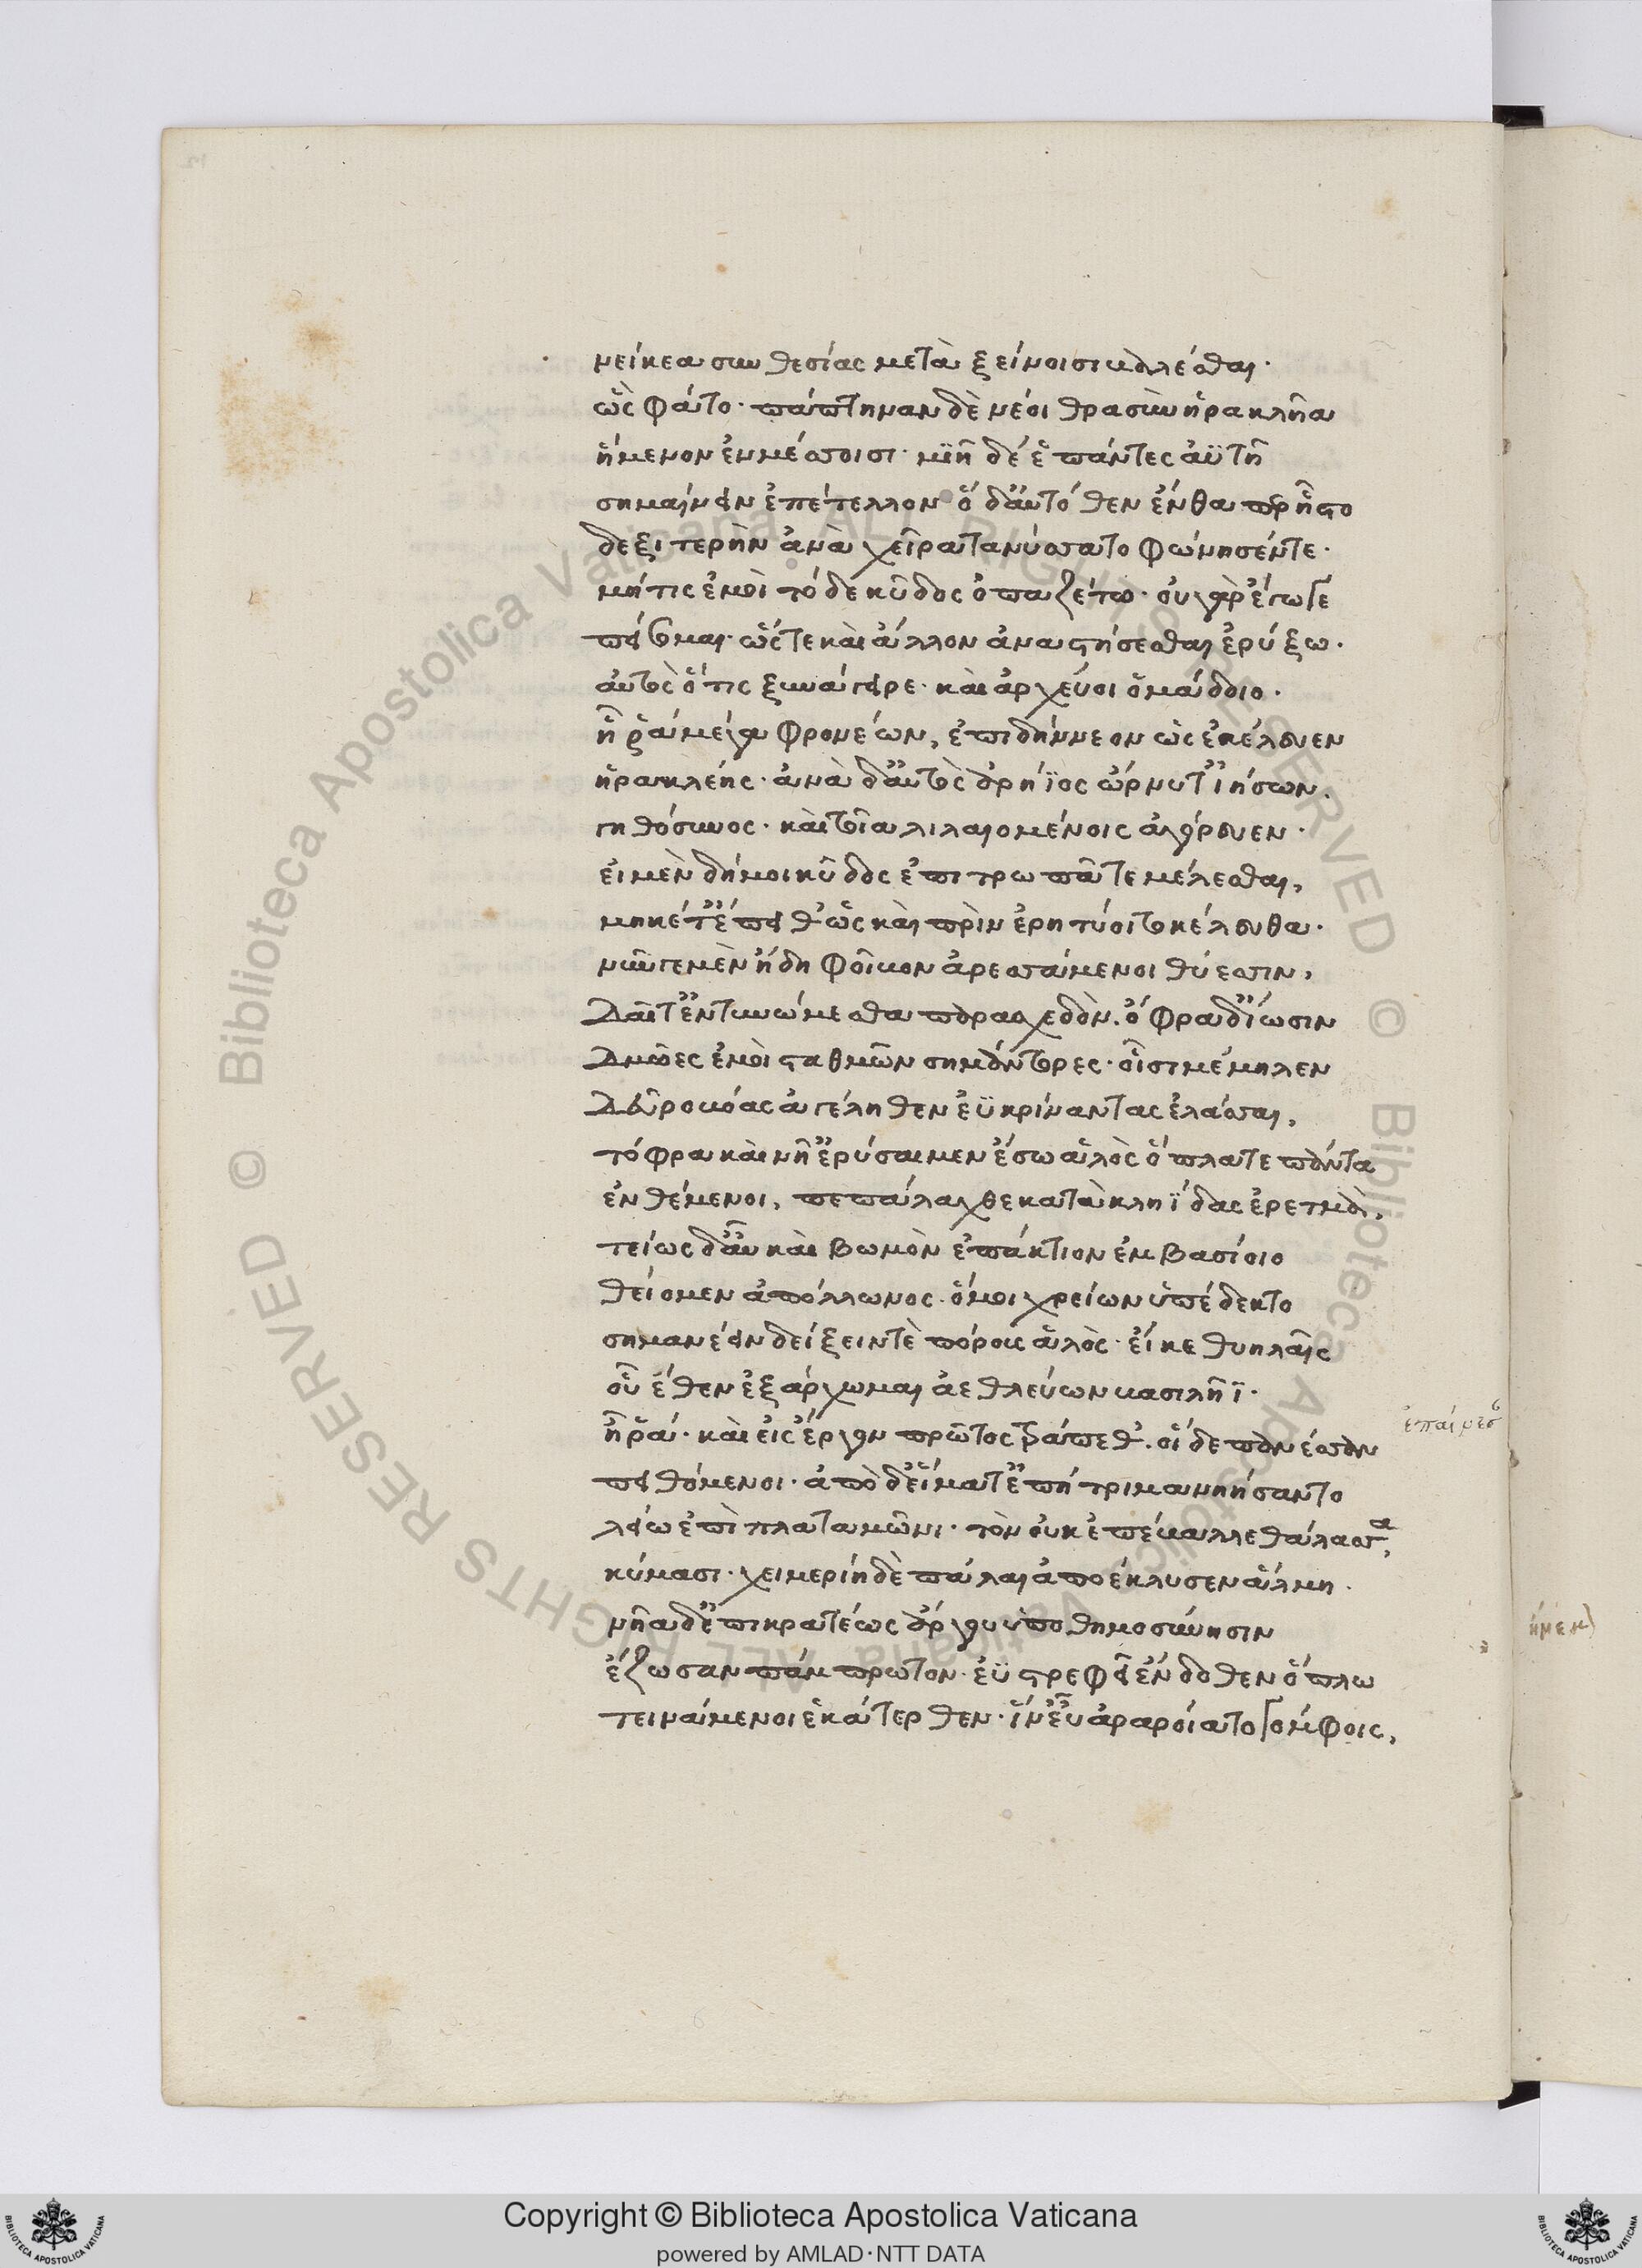 νείκεα συνθεσίας μετὰ ξείνοισι βαλέσθαι·
ὣς φάτο· πάπτηναν δὲ νέοι θρασὺν ἡρακλῆα
ἥμενον ἐν μέσσοισι· μιῆ δέ ἑ πάντες ἀϋτῆ
σημαίνειν ἐπέτελλον· ὁ δ᾽ αὐτόθεν ἔνθα περ ἧστο
δεξιτερὴν ἀνὰ χεῖρα τανύσσατο φώνησέν τε·
μήτις ἐμοὶ τόδε κῦδος ὀπαζέτω· οὐ γὰρ ἔγωγε
πείσομαι· ὥστε καὶ ἄλλον ἀναστήσεσθαι ἐρύξω·
αὐτὸς ὅτις ξυνάγειρε· καὶ ἀρχεύοι ὁμάδοιο·
ἦ ῥα μέγα φρονέων, ἐπὶ δ᾽ ἤνεον ὡς ἐκέλευεν
ἡρακλέης· ἀνὰ δ᾽ αὐτὸς ἀρήϊος ὤρνυτ᾽ ἰήσων.
γηθόσυνος· καὶ τοῖα λιλαιομένοις ἀγόρευεν·
εἰ μὲν δή μοι κῦδος ἐπιτρωπᾶτε μέλεσθαι,
μηκέτ᾽ ἔπειθ᾽ ὡς καὶ πρὶν ἐρητύοιτο κέλευθα·
νῦν γε μὲν ἤδη φοῖβον ἀρεσσάμενοι θύεσσιν,
δαῖτ᾽ ἐντυνώμεσθα παρασχεδόν. ὄφρα δ᾽ ἴωσιν
δμῶες ἐμοὶ σταθμῶν σημάντορες· οἷσι μέμηλεν
δεῦρο βόας ἀγέληθεν ἐῢ κρίναντας ἐλάσσαι,
τόφρα καὶ νῆ᾽ ἐρύσαιμεν ἔσω ἁλὸς ὅπλα τε πάντα
ἐνθέμενοι, πεπάλαχθε κατὰ κληΐδας ἐρετμά,
τείως δ᾽ αὖ καὶ βωμὸν ἐπάκτιον ἐμβασίοιο
θείομεν ἀπόλλωνος· ὅ μοι χρείων ὑπέδεκτο
σημανέειν δείξειν τε πόρους ἁλὸς· εἴ κε θυηλαῖς
οὗ ἕθεν ἐξάρχωμαι ἀεθλεύων βασιλῆϊ·
ἦ ῥα· καὶ εἰς ἔργον πρῶτος τράπεθ᾽· οἱ δ᾽ ἐπανέσταν
πειθόμενοι· ἀπὸ δ᾽ εἵματ᾽ ἐπήτριμα νηήσαντο
λείω ἐπὶ πλαταμῶνι· τὸν οὐκ ἐπέβαλλε θάλασσα,
κύμασι· χειμερίη δὲ πάλαι ἀποέκλυσεν ἅλμη·
νῆα δ᾽ ἐπικρατέως ἄργου ὑποθημοσύνησιν
ἔζωσαν πάμπρωτον· ἐϋστρεφεῖ ἔνδοθεν ὅπλω
τεινάμενοι ἑκάτερθεν· ἵν᾽ εὖ ἀραροίατο γόμφοις,
Copyright © Biblioteca Apostolica Vaticana
powered by AMLAD·NTT DATA